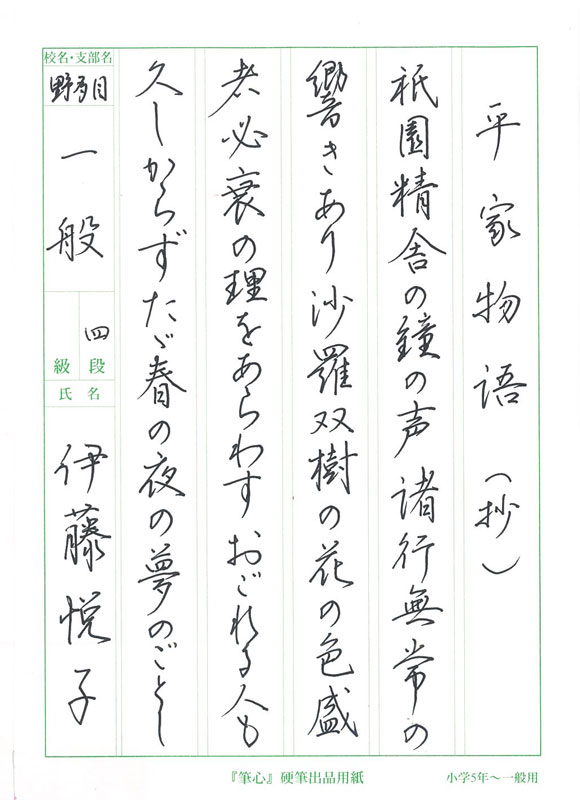 平家物語（抄）
祇園精舎の鐘の声諸行無常の
響きあり沙羅双樹の花の色盛
者必衰の理をあらわすおごれる人も
久しからずたゞ春の夜の夢のごとし
校名・支部名
野多目
一般
四
級段
氏名
伊藤悦子
『筆心』硬筆出品用紙
小学5年～一般用